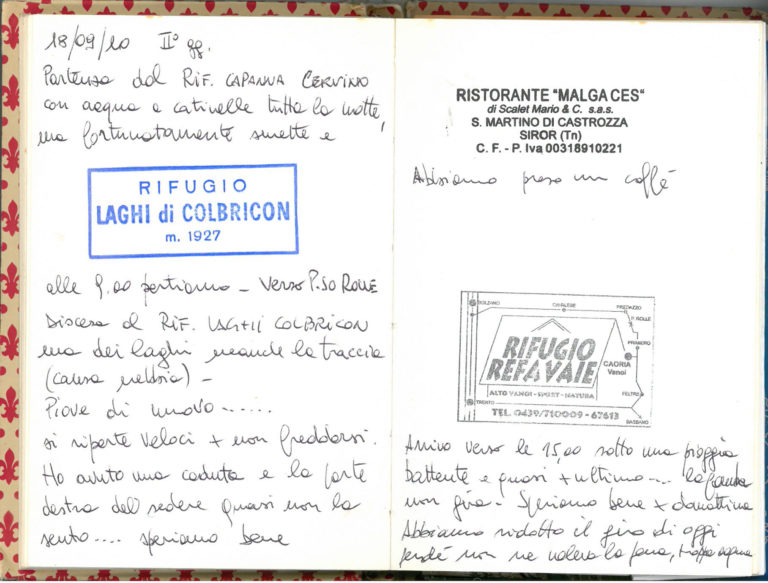 18/09/10 II° gg.
Partenza dal RIF. CAPANNA CERVINO
con acqua a catinelle tutta la notte,
ma fortunatamente smette e
RIFUGIO
LAGHI di COLBRICON
m. 1927
alle 9.00 partiamo - VERSO P.SO ROLLE
DISCESA al RIF. LAGHI COLBRICON
ma dei laghi neanche la traccia
(causa nebbia) -
Piove di nuovo ......
si riparte veloci x non freddarsi.
Ho avuto una caduta e la parte
destra del sedere quasi non la
sento .... speriamo bene
RISTORANTE "MALGA CES"
di Scalet Mario & C. s.a.s.
S. MARTINO DI CASTROZZA
SIROR (Tn)
C. F. - P. Iva 00318910221
Abbiamo preso un caffè
BOLZANO
CAVALESE
PREDAZZO
P. ROLLE
PRIMIERO
RIFUGIO
REFAVAIE
CAORIA
Vanoi
ALTO VANOI - SPORT - NATURA
FELTRE
TRENTO
BASSANO
TEL. 0439/710009 - 67613
Arrivo verso le 15,00 sotto una pioggia
battente e quasi x ultimo .... la gamba
non gira - Speriamo bene x domattina
Abbiamo ridotto il giro di oggi
perché non ne valeva la pena, troppa acqua